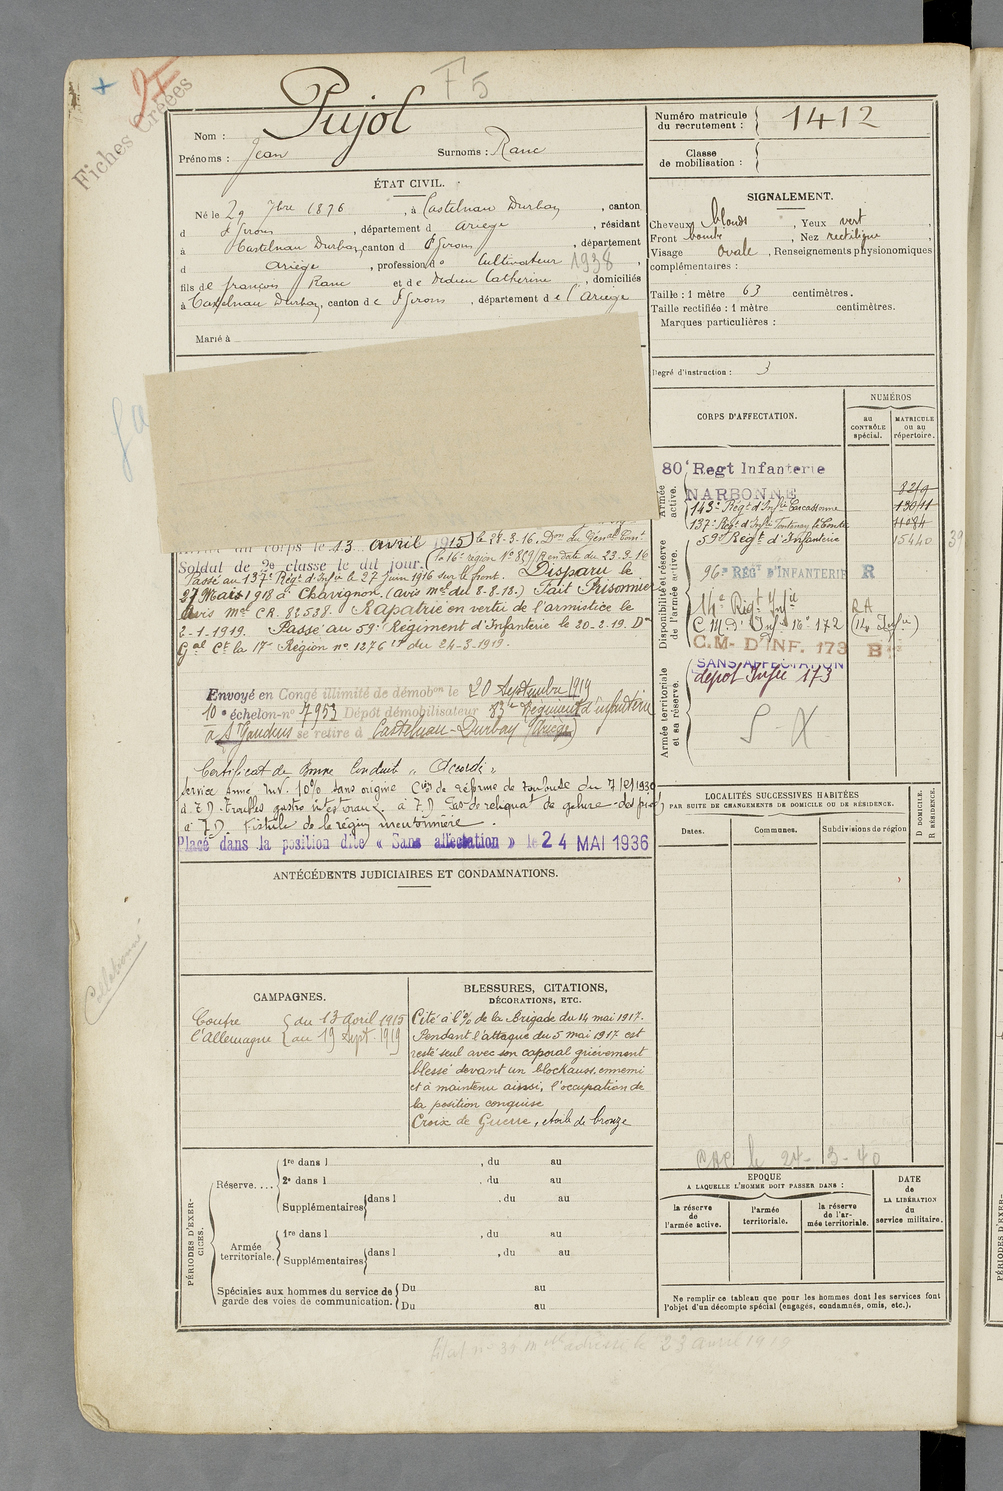 Fiches Créées
F 5
Nom : Pujol
Prénoms : Jean Surnoms : Ranc
Numéro matricule
du recrutement : 1412
Classe
de mobilisation :
ÉTAT CIVIL.
Né le 29 7bre 1896, à Castelnau Durban, canton
d St Girons, département d Ariège, résidant
à Castelnau Durban, canton d St Girons, département
d Ariège, profession d Cultivateur 1938,
fils de françois Ranc et de Dedieu Catherine, domiciliés
à Castelnau Durban, canton de St Girons, département de l'Ariège
Marié à
SIGNALEMENT.
Cheveux blonds, Yeux vert,
Front bombé, Nez rectiligne,
Visage Ovale, Renseignements physionomiques
complémentaires :
Taille : 1 mètre 63 centimètres.
Taille rectifiée : 1 mètre centimètres.
Marques particulières :
Degré d'instruction : 3
CORPS D'AFFECTATION.
NUMÉROS
au
CONTRÔLE
spécial.
MATRICULE
ou au
répertoire.
Armée
active.
80e Regt Infanterie
NARBONNE
143e Régt d'Infie Carcassonne
137e Régt d'Infie Fontenay le Comte
59e Régt d'Infanterie 15440
Disponibilité et réserve
de l'armée active.
96e REGt D'INFANTERIE R
14e Régt Infie
C M D' Inf. No 172
C.M- D'INF. 173 B
Armée territoriale
et sa réserve.
SANS AFFECTATION
dépôt Infie 173
corps le 13 avril 1915) le 28-3-16. Don du Général Comt
Soldat de 2e classe le dit jour. (la 16e région No 869/R en date du 23-3-16
Passé au 137e Régt d'Infie le 27 juin 1916 sur le front. Disparu le
27 Mars 1918 à Chavignon. (avis Mel du 8-8-18.) Fait Prisonnier
Avis Mel CR. 82538. Rapatrié en vertu de l'armistice le
2-1-1919. Passé au 59e Régiment d'Infanterie le 20-2-19. Don
Gal Ct la 17e Région no 1276 du 24-3-1919.
Envoyé en Congé illimité de démobon le 20 Septembre 1919
10e échelon-no 7953 Dépôt démobilisateur 83e Régiment d'infanterie
à St Gaudens se retire à Castelnau-Durban (Ariège)
Certificat de Bonne Conduite "Accordé"
Placé dans la position dite « Sans affectation » le 24 MAI 1936
ANTÉCÉDENTS JUDICIAIRES ET CONDAMNATIONS.
LOCALITÉS SUCCESSIVES HABITÉES
PAR SUITE DE CHANGEMENTS DE DOMICILE OU DE RÉSIDENCE.
Dates.
Communes.
Subdivisions de région
D DOMICILE.
R RÉSIDENCE.
Collationné
CAMPAGNES.
Contre { du 13 Avril 1915
l'Allemagne { au 19 Sept. 1919
BLESSURES, CITATIONS,
DÉCORATIONS, ETC.
Cité à l'O/ de la Brigade du 14 mai 1917.
Pendant l'attaque du 5 mai 1917 est
resté seul avec son caporal grièvement
blessé devant un blockauss, ennemi
et à maintenu ainsi, l'occupation de
la position conquise
Croix de Guerre, étoile de bronze
PÉRIODES D'EXER-
CICES.
Réserve....
1re dans l , du au
2e dans l , du au
Supplémentaires dans l , du au
Armée
territoriale.
1re dans l , du au
Supplémentaires dans l , du au
Spéciales aux hommes du service de
garde des voies de communication.
Du au
Du au
le 24-3-40
EPOQUE
A LAQUELLE L'HOMME DOIT PASSER DANS :
la réserve
de
l'armée active.
l'armée
territoriale.
la réserve
de l'ar-
mée territoriale.
DATE
de
LA LIBÉRATION
du
service militaire.
Ne remplir ce tableau que pour les hommes dont les services font
l'objet d'un décompte spécial (engagés, condamnés, omis, etc.).
23 avril 1919